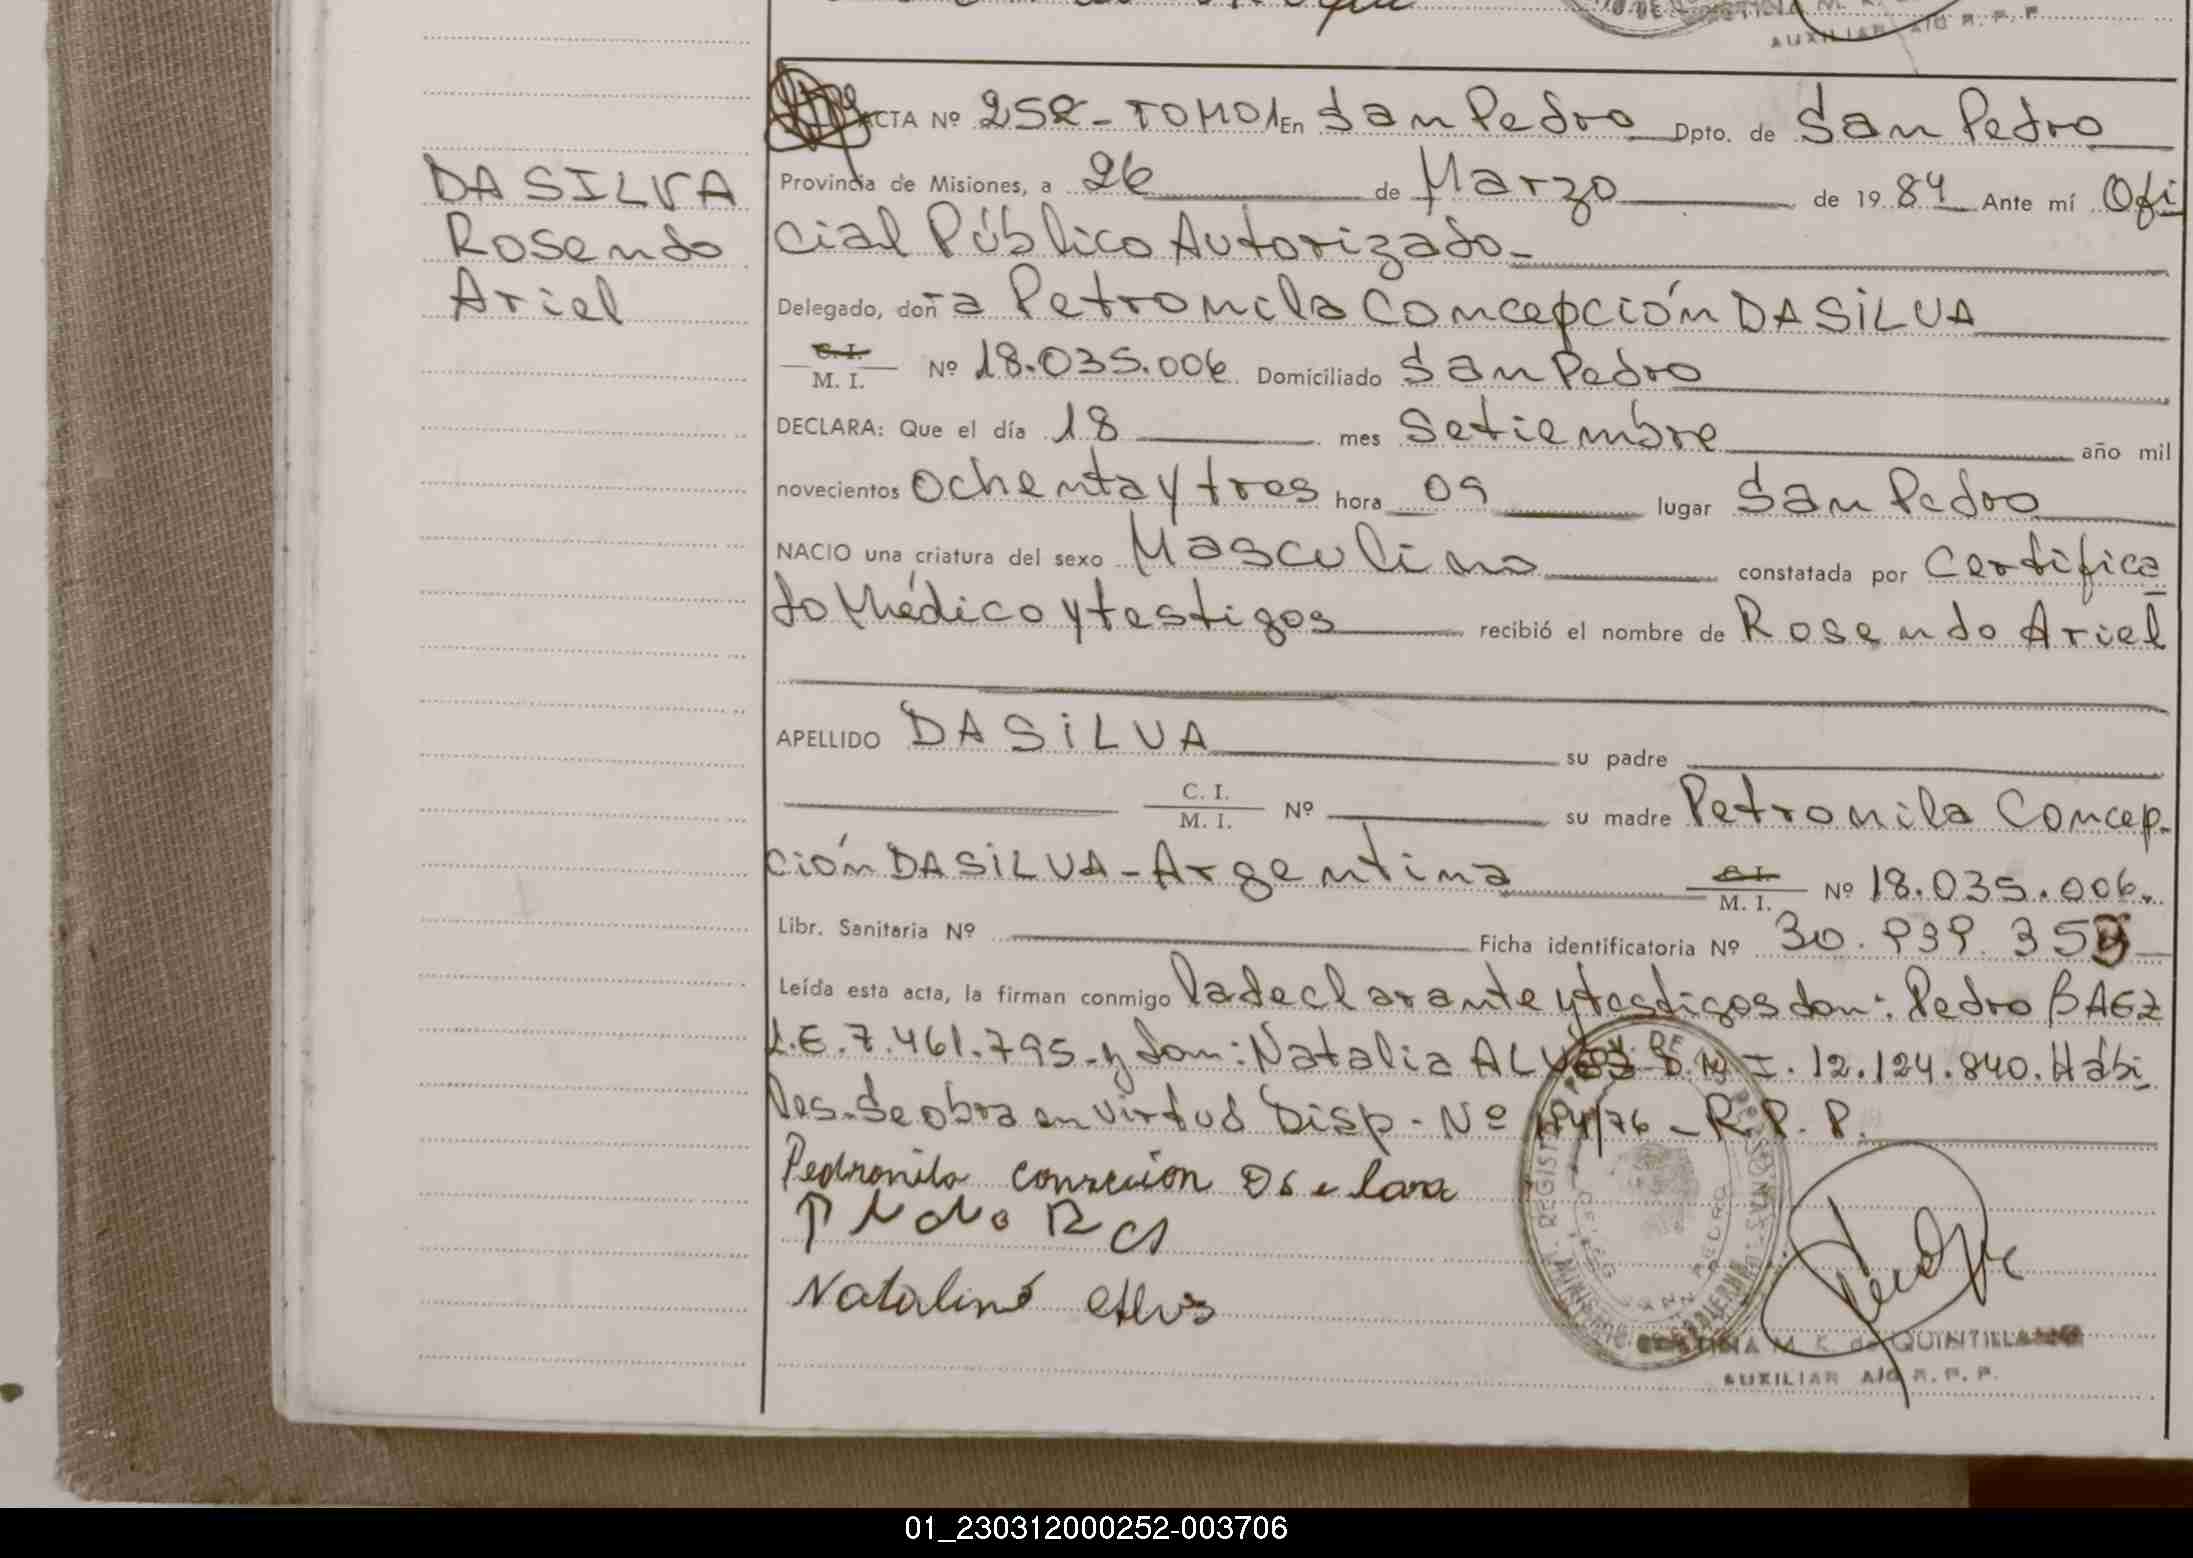 AUXILIAR A/C R. P. P.
DA SILVA
Rosendo
Ariel
ACTA Nº 252 - TOMO 1 En San Pedro Dpto. de San Pedro
Provincia de Misiones, a 26 de Marzo de 1984 Ante mí Ofi
cial Público Autorizado -
Delegado, doña Petronila Concepción DA SILVA
C. I. M. I. Nº 18.035.006 Domiciliado San Pedro
DECLARA: Que el día 18 mes Setiembre año mil
novecientos Ochenta y tres hora 09 lugar San Pedro
NACIO una criatura del sexo Masculino constatada por Certifica
do Médico y testigos recibió el nombre de Rosendo Ariel
APELLIDO DA SILVA su padre
C. I. M. I. Nº su madre Petronila Concep-
ción DA SILVA - Argentina C. I. M. I. Nº 18.035.006.
Libr. Sanitaria Nº Ficha identificatoria Nº 30.939.35
Leída esta acta, la firman conmigo la declarante y testigos don: Pedro BAEZ
L.E. 7.461.795 - y don: Natalia ALVES D.N.I. 12.124.840. Hábi
les. Se obra en virtud Disp. Nº 194/76 - R.P.P.
Natalino Alves
CRISTINA M. K. de QUINTILLANO
AUXILIAR A/C R. P. P.
01_230312000252-003706